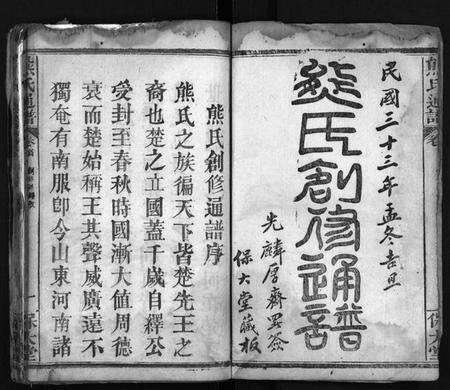 民國三十三年孟冬吉旦
熊氏創修通譜
先麟厚齋署簽
保大堂藏板
熊氏通譜
保大堂
熊氏創修通譜序
熊氏之族徧天下皆楚先王之
裔也楚之立國蓋千歲自繹公
受封至春秋時國漸大值周德
衰而楚始稱王其聲威廣遠不
獨奄有南服即今山東河南諸
熊氏通譜
一
保大堂